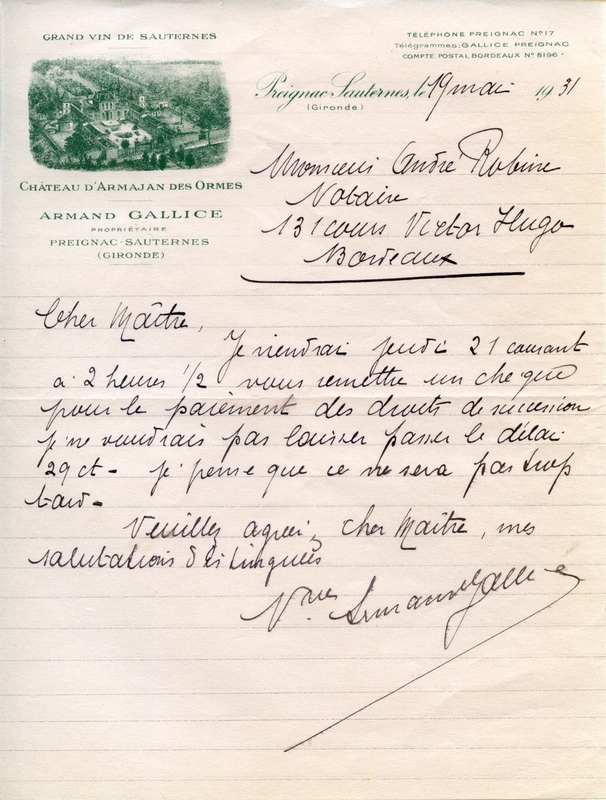 GRAND VIN DE SAUTERNES
CHÂTEAU D'ARMAJAN DES ORMES
ARMAND GALLICE
PROPRIÉTAIRE
PREIGNAC-SAUTERNES
(GIRONDE)
TÉLÉPHONE PREIGNAC N°17
Télégrammes: GALLICE PREIGNAC
COMPTE POSTAL BORDEAUX N° 8196
Preignac-Sauternes, le 19 mai 1931
(Gironde)
Monsieur André Robine
Notaire
131 cours Victor Hugo
Bordeaux
Cher Maître,
Je viendrai jeudi 21 courant
à 2 heures 1/2 vous remettre un chèque
pour le paiement des droits de succession
je ne voudrais pas laisser passer le délai
29 ct - je pense que ce ne sera pas trop
tard -
Veuillez agréer, cher Maître, mes
salutations distinguées
Vve Armand Gallice